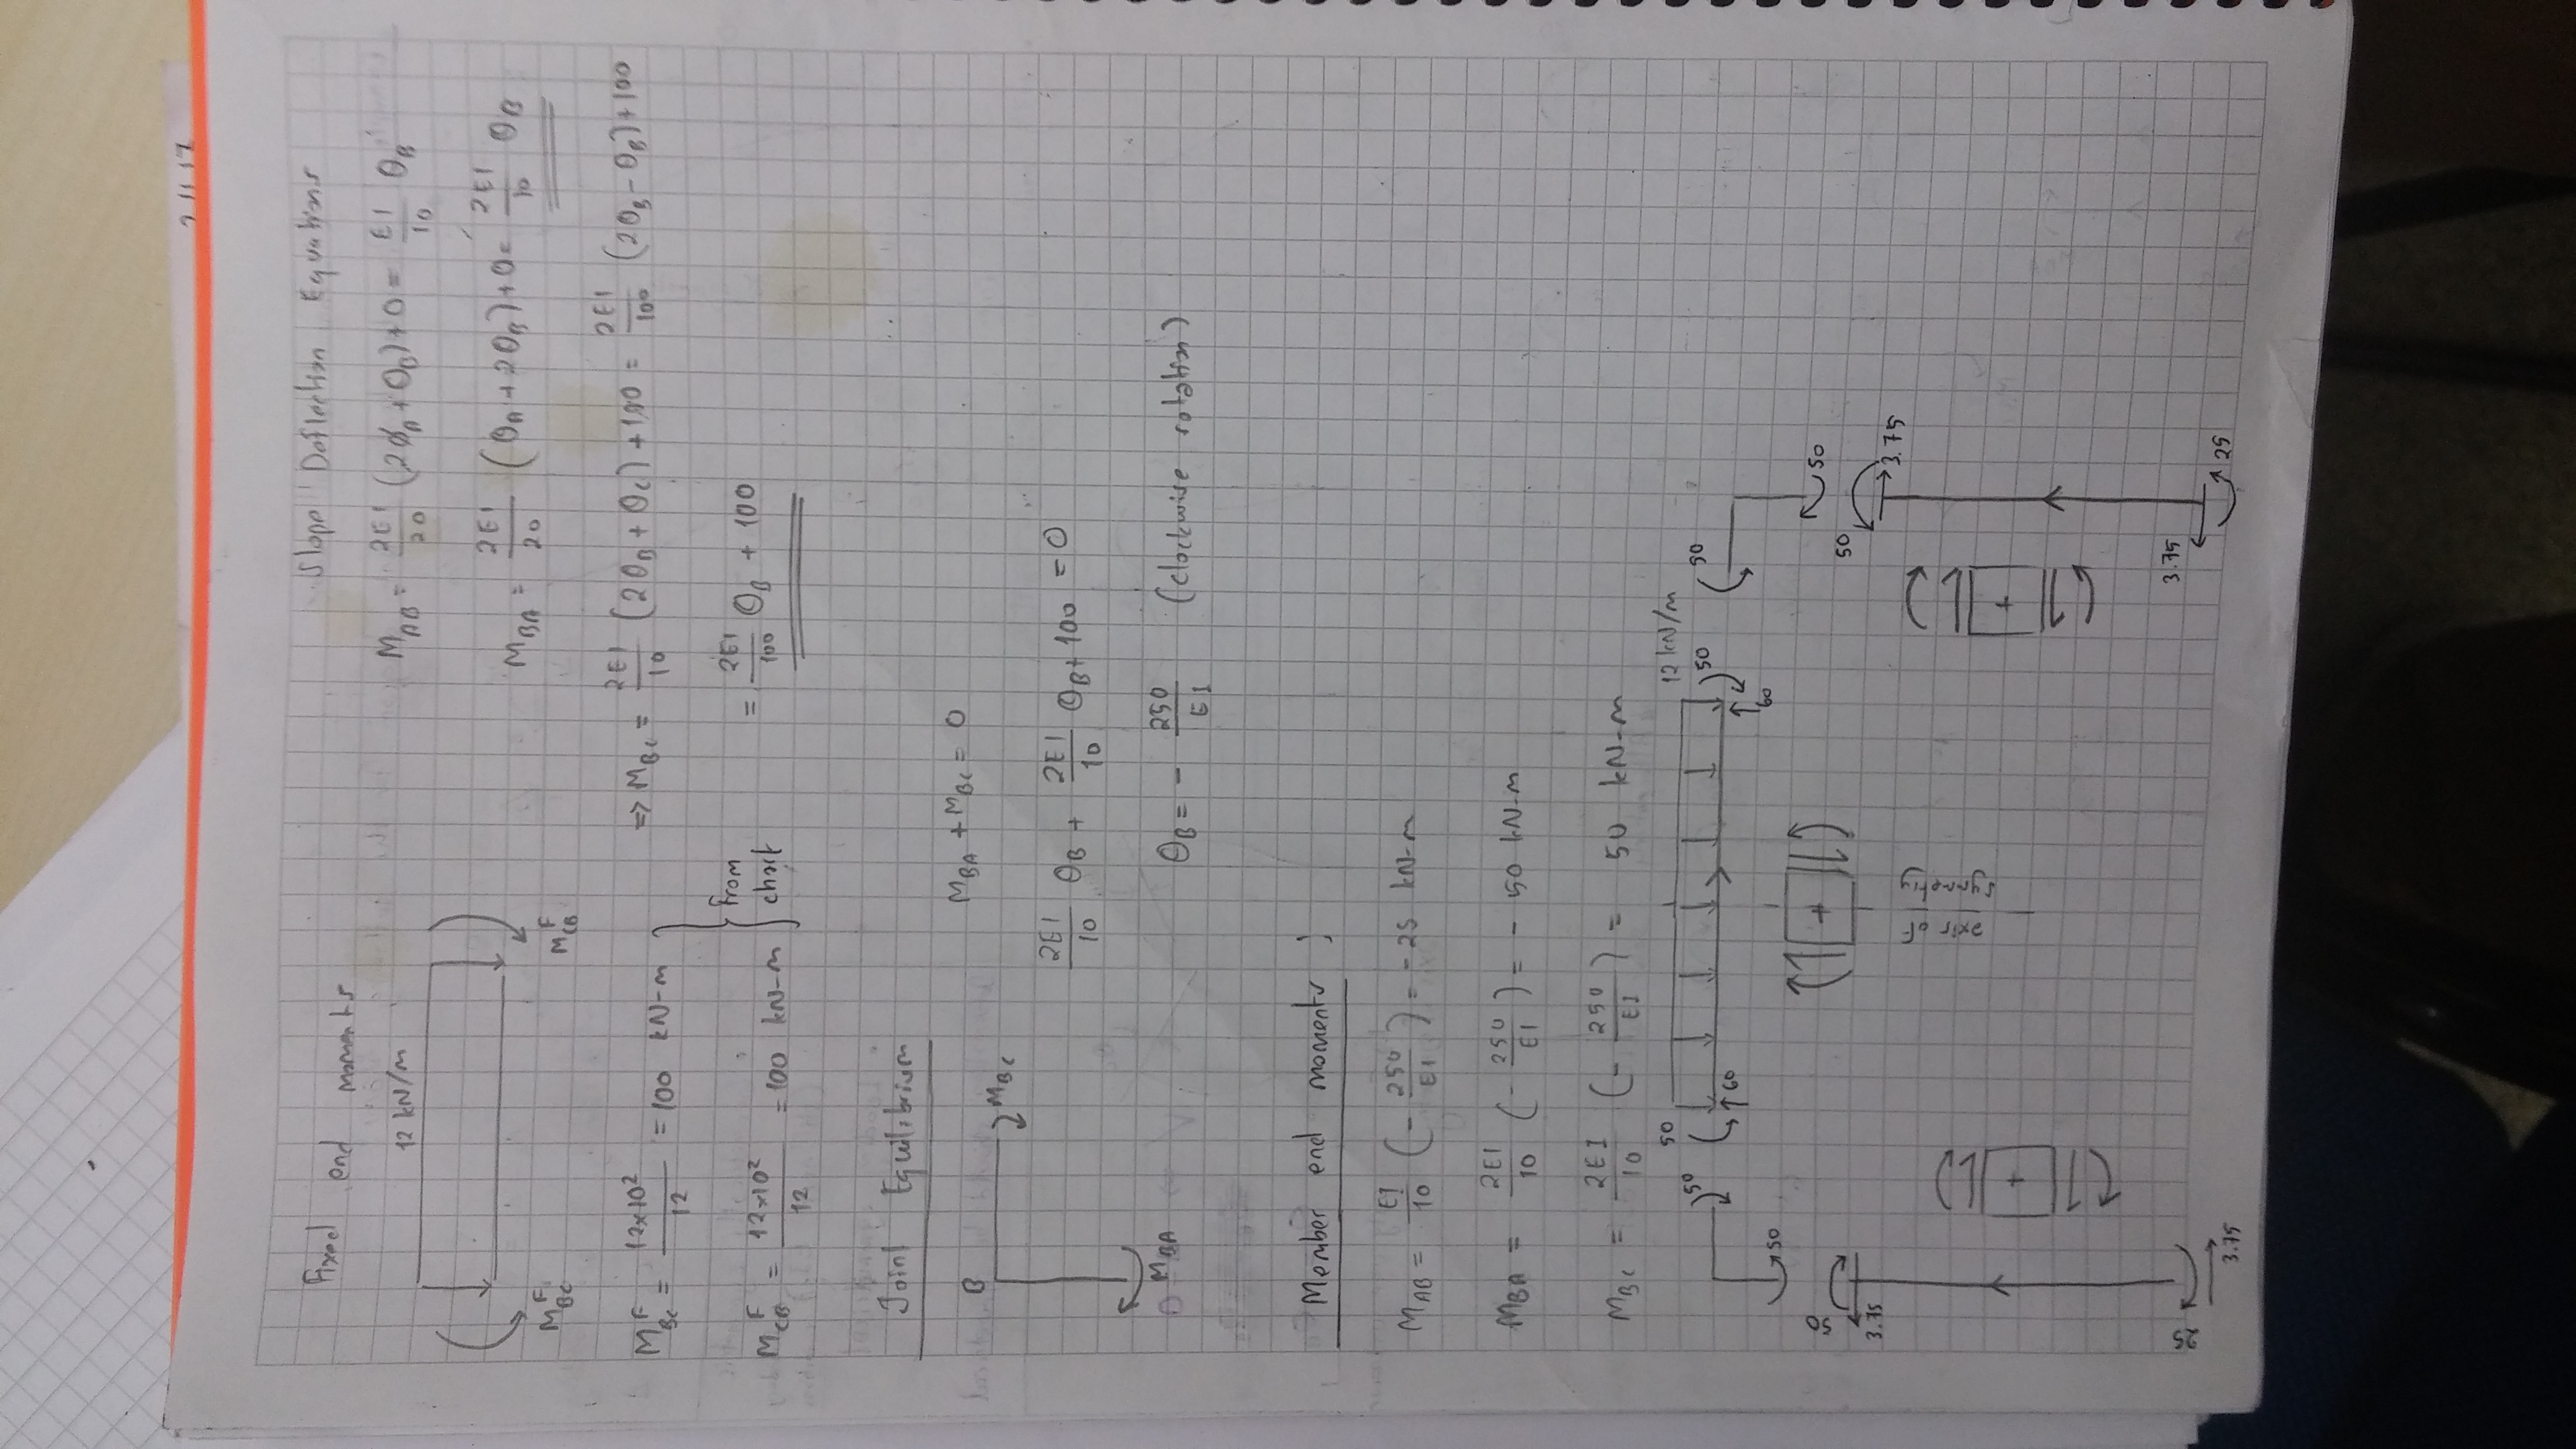 2.11.17
Fixed end moments
12 kN/m
M^F_BC
M^F_CB
M^F_BC = 12x10²/12 = 100 kN-m
M^F_CB = 12x10²/12 = 100 kN-m
From chart
Slope Deflection Equations
M_AB = 2EI/20 (2θ_A + θ_B) + 0 = EI/10 θ_B
M_BA = 2EI/20 (θ_A + 2θ_B) + 0 = 2EI/10 θ_B
=> M_BC = 2EI/10 (2θ_B + θ_C) + 100 = 2EI/100 (2θ_B - θ_B) + 100
= 2EI/100 θ_B + 100
Joint Equilibrium
B
M_BC
M_BA
M_BA + M_BC = 0
2EI/10 θ_B + 2EI/10 θ_B + 100 = 0
θ_B = - 250/EI (clockwise rotation)
Member end moments ;
M_AB = EI/10 (- 250/EI) = - 25 kN-m
M_BA = 2EI/10 (- 250/EI) = - 50 kN-m
M_BC = 2EI/10 (- 250/EI) = 50 kN-m
50
50
50
12 kN/m
60
60
50
50
50
50
3.75
+
axis of symmetry
50
3.75
+
+
25
3.75
3.75
25